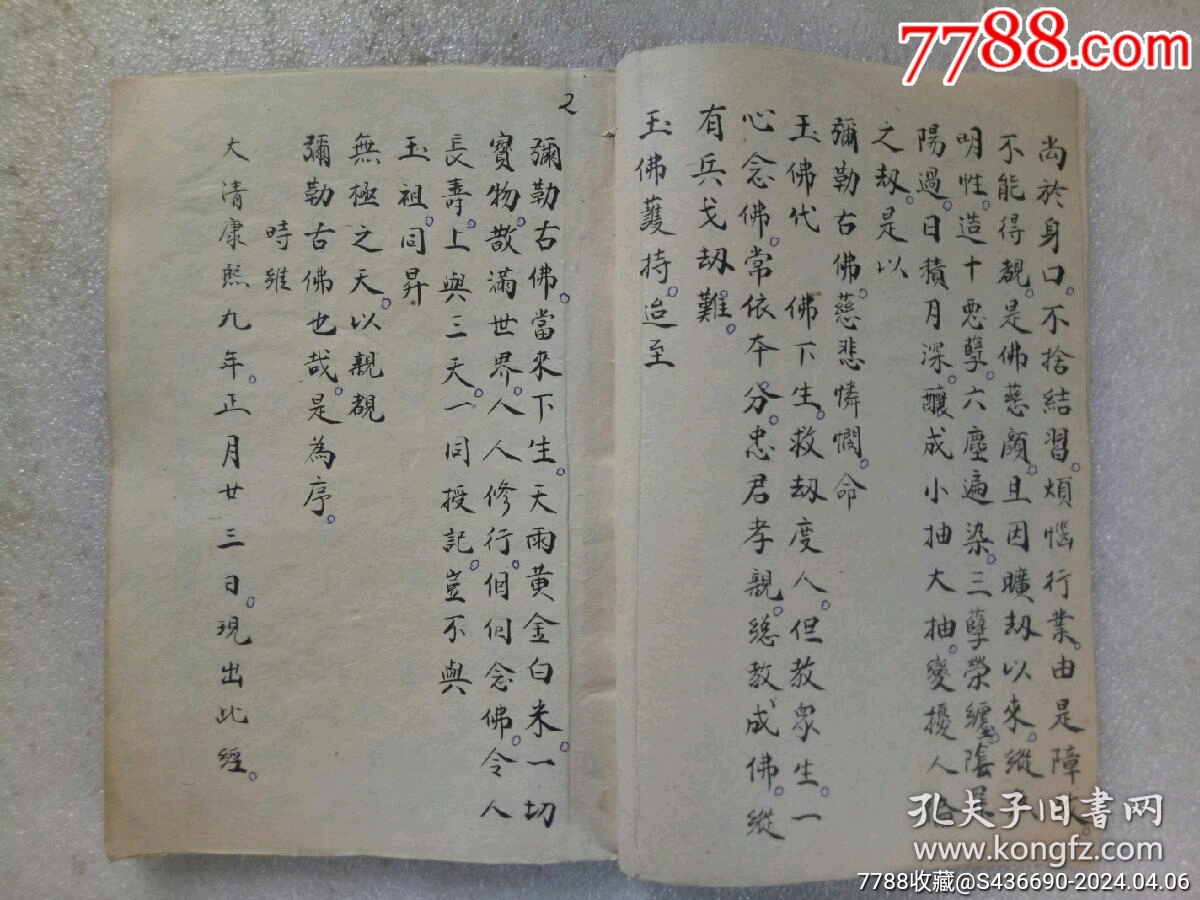 尚於身口。不捨結習。煩惱行業。由是障故。
不能得覩。是佛慈顔。且因曠刼以來。縱
明性。造十惡孽。六塵遍染。三孽縈纏。陰
陽過。日積月深。釀成小抽大抽。變擾人
之刼。是以
彌勒古佛。慈悲憐憫。命
玉佛代 佛下生。救刼度人。但教衆生。一
心念佛。常依本分。忠君孝親。總教成佛。縱
有兵戈刼難。
玉佛護持。迨至
2
彌勒古佛。當來下生。天雨黄金白米。一切
寳物。散滿世界。人人修行。個個念佛。令人
長壽。上與三天。一同授記。豈不與
玉祖。同昇
無極之天。以親覩
彌勒古佛也哉。是為序。
時維
大清康熙九年。正月廿三日。現出此經。
7788.com
孔夫子旧書网
www.kongfz.com
7788收藏@S436690-2024.04.06